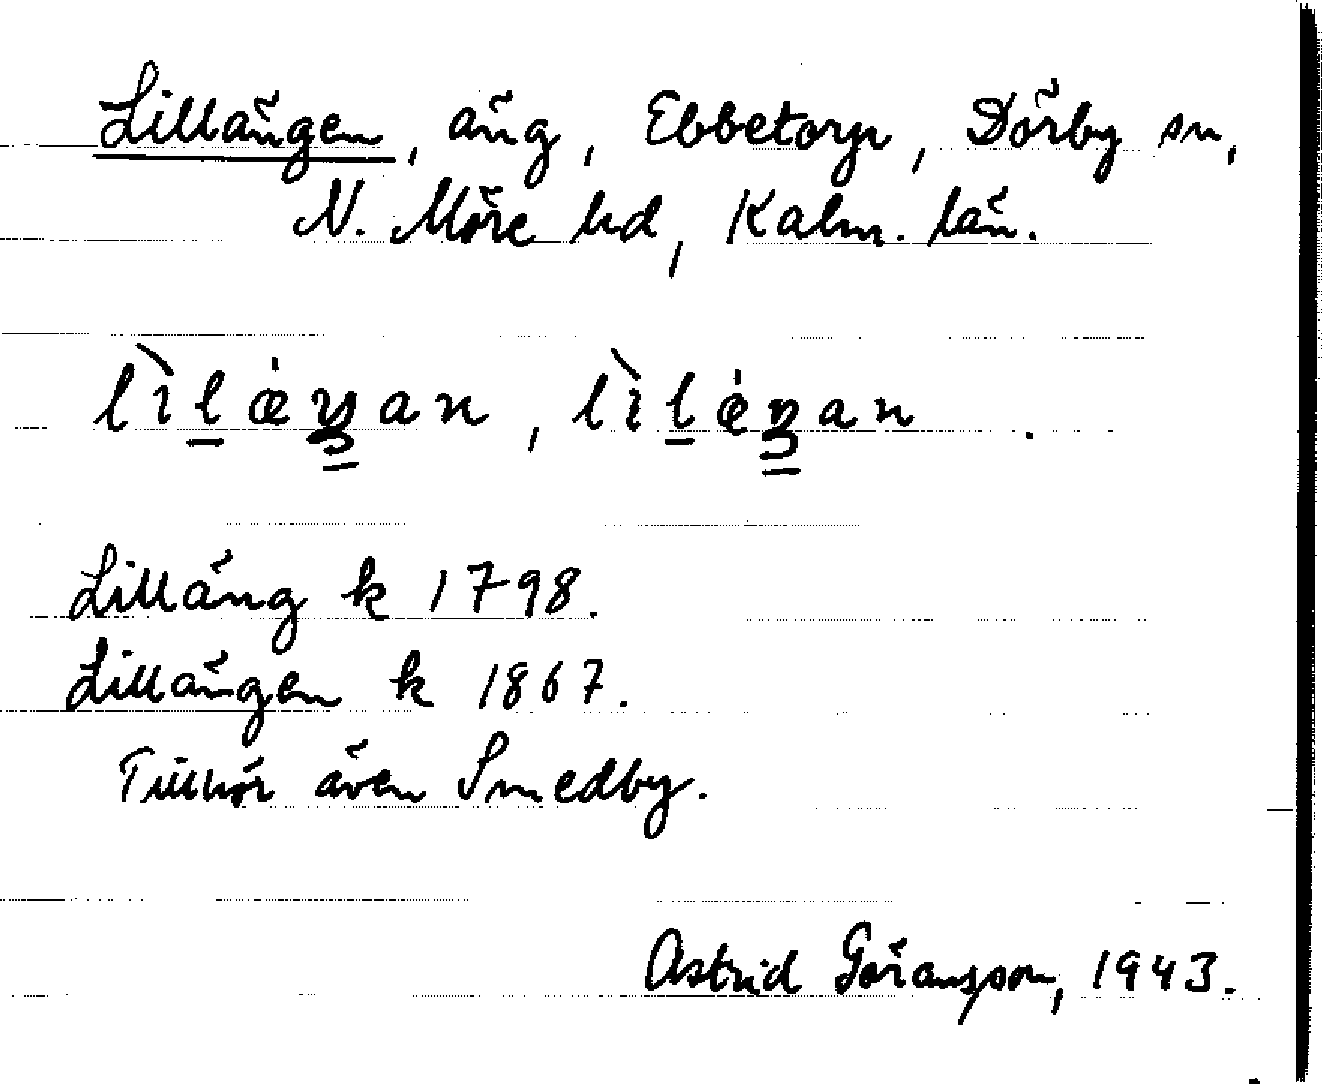 Lillängen, äng, Ebbetorp, Dörby sn,
N. Möre hd, Kalm. län.
lìlǽŋan, lìlėŋan.
Lilläng k 1798.
Lillängen k 1867.
Tillhör även Smedby.
Astrid Göransson, 1943.